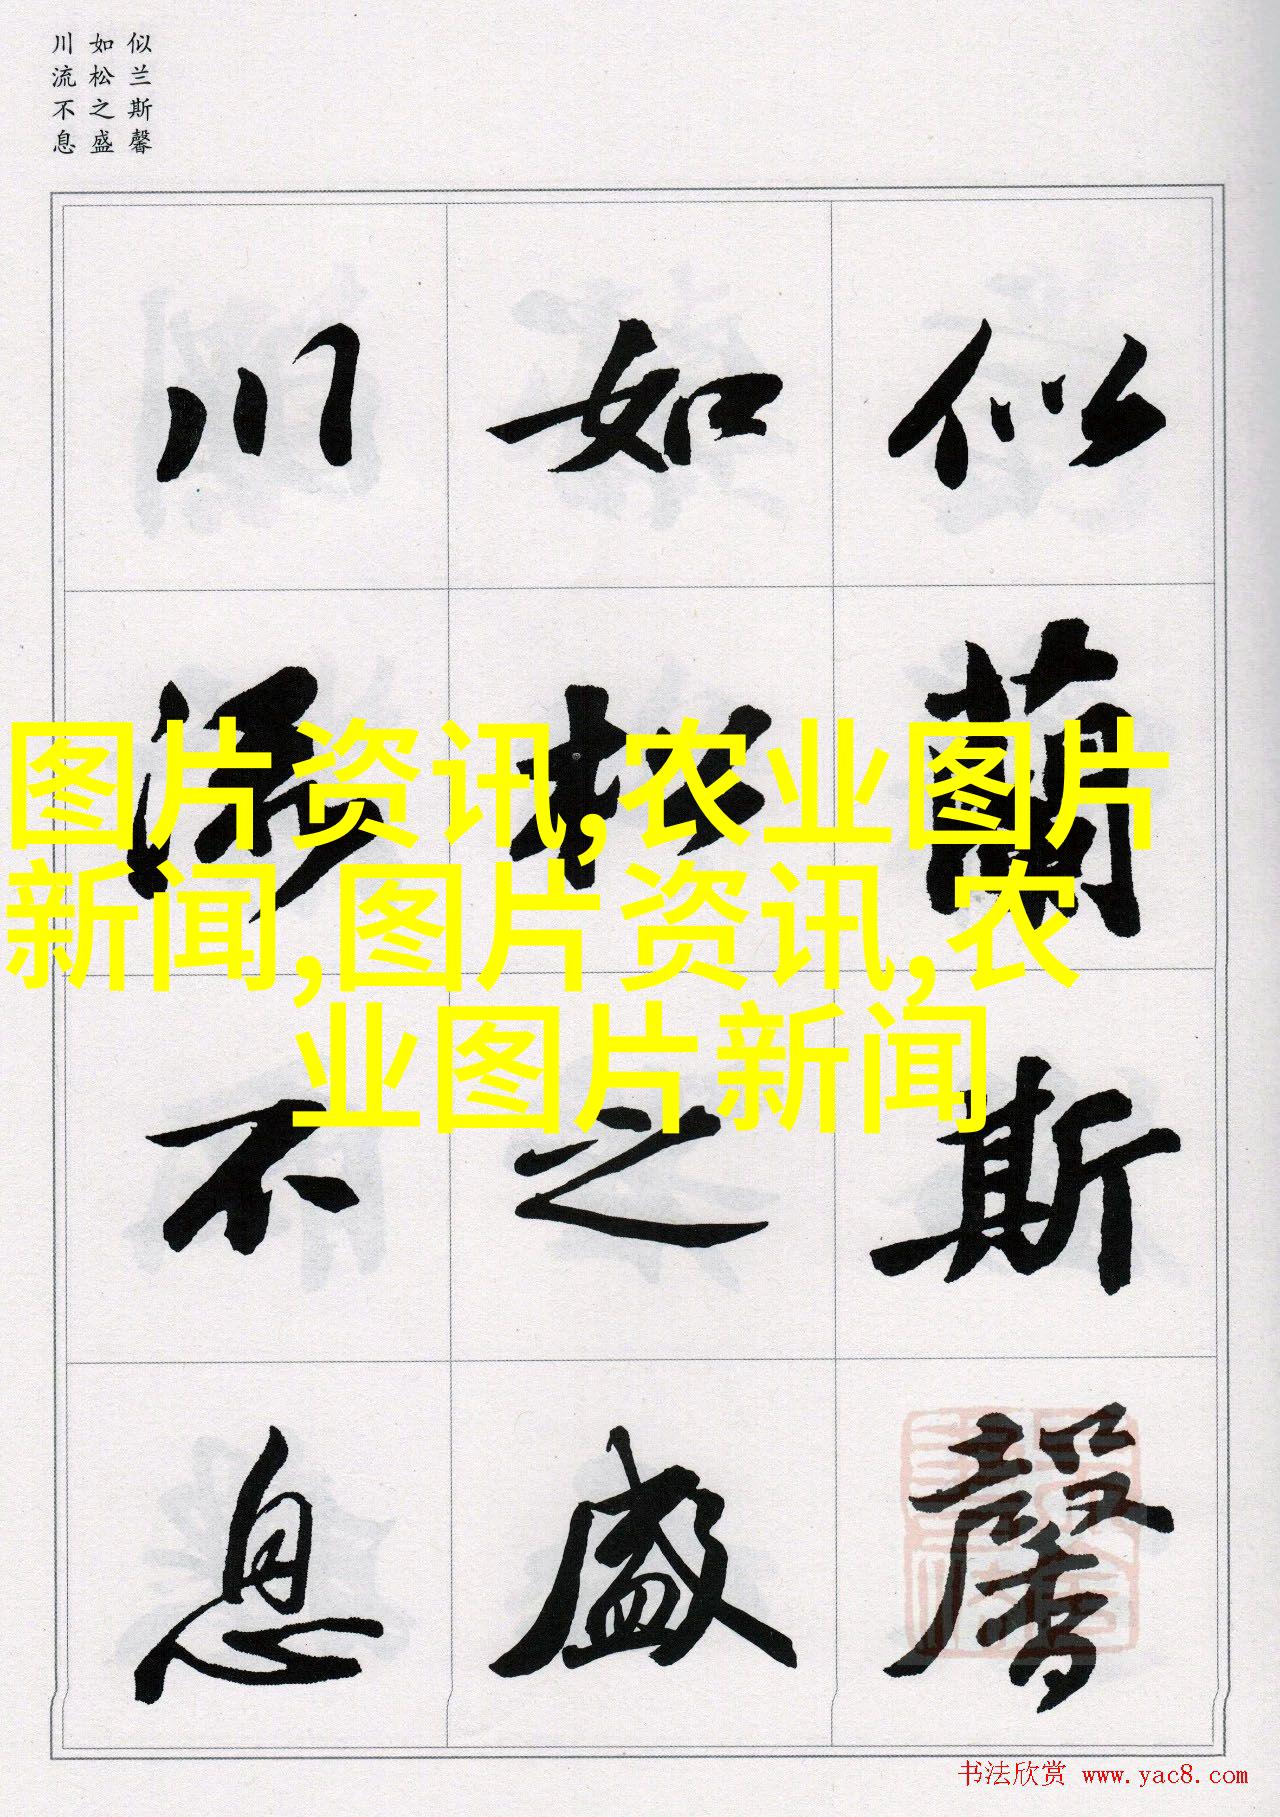 似兰斯馨
如松之盛
川流不息
似蘭斯馨
如松之盛
川流不息
图片资讯,农业图片
新闻,图片资讯,农
业图片新闻
书法欣赏 www.yac8.com